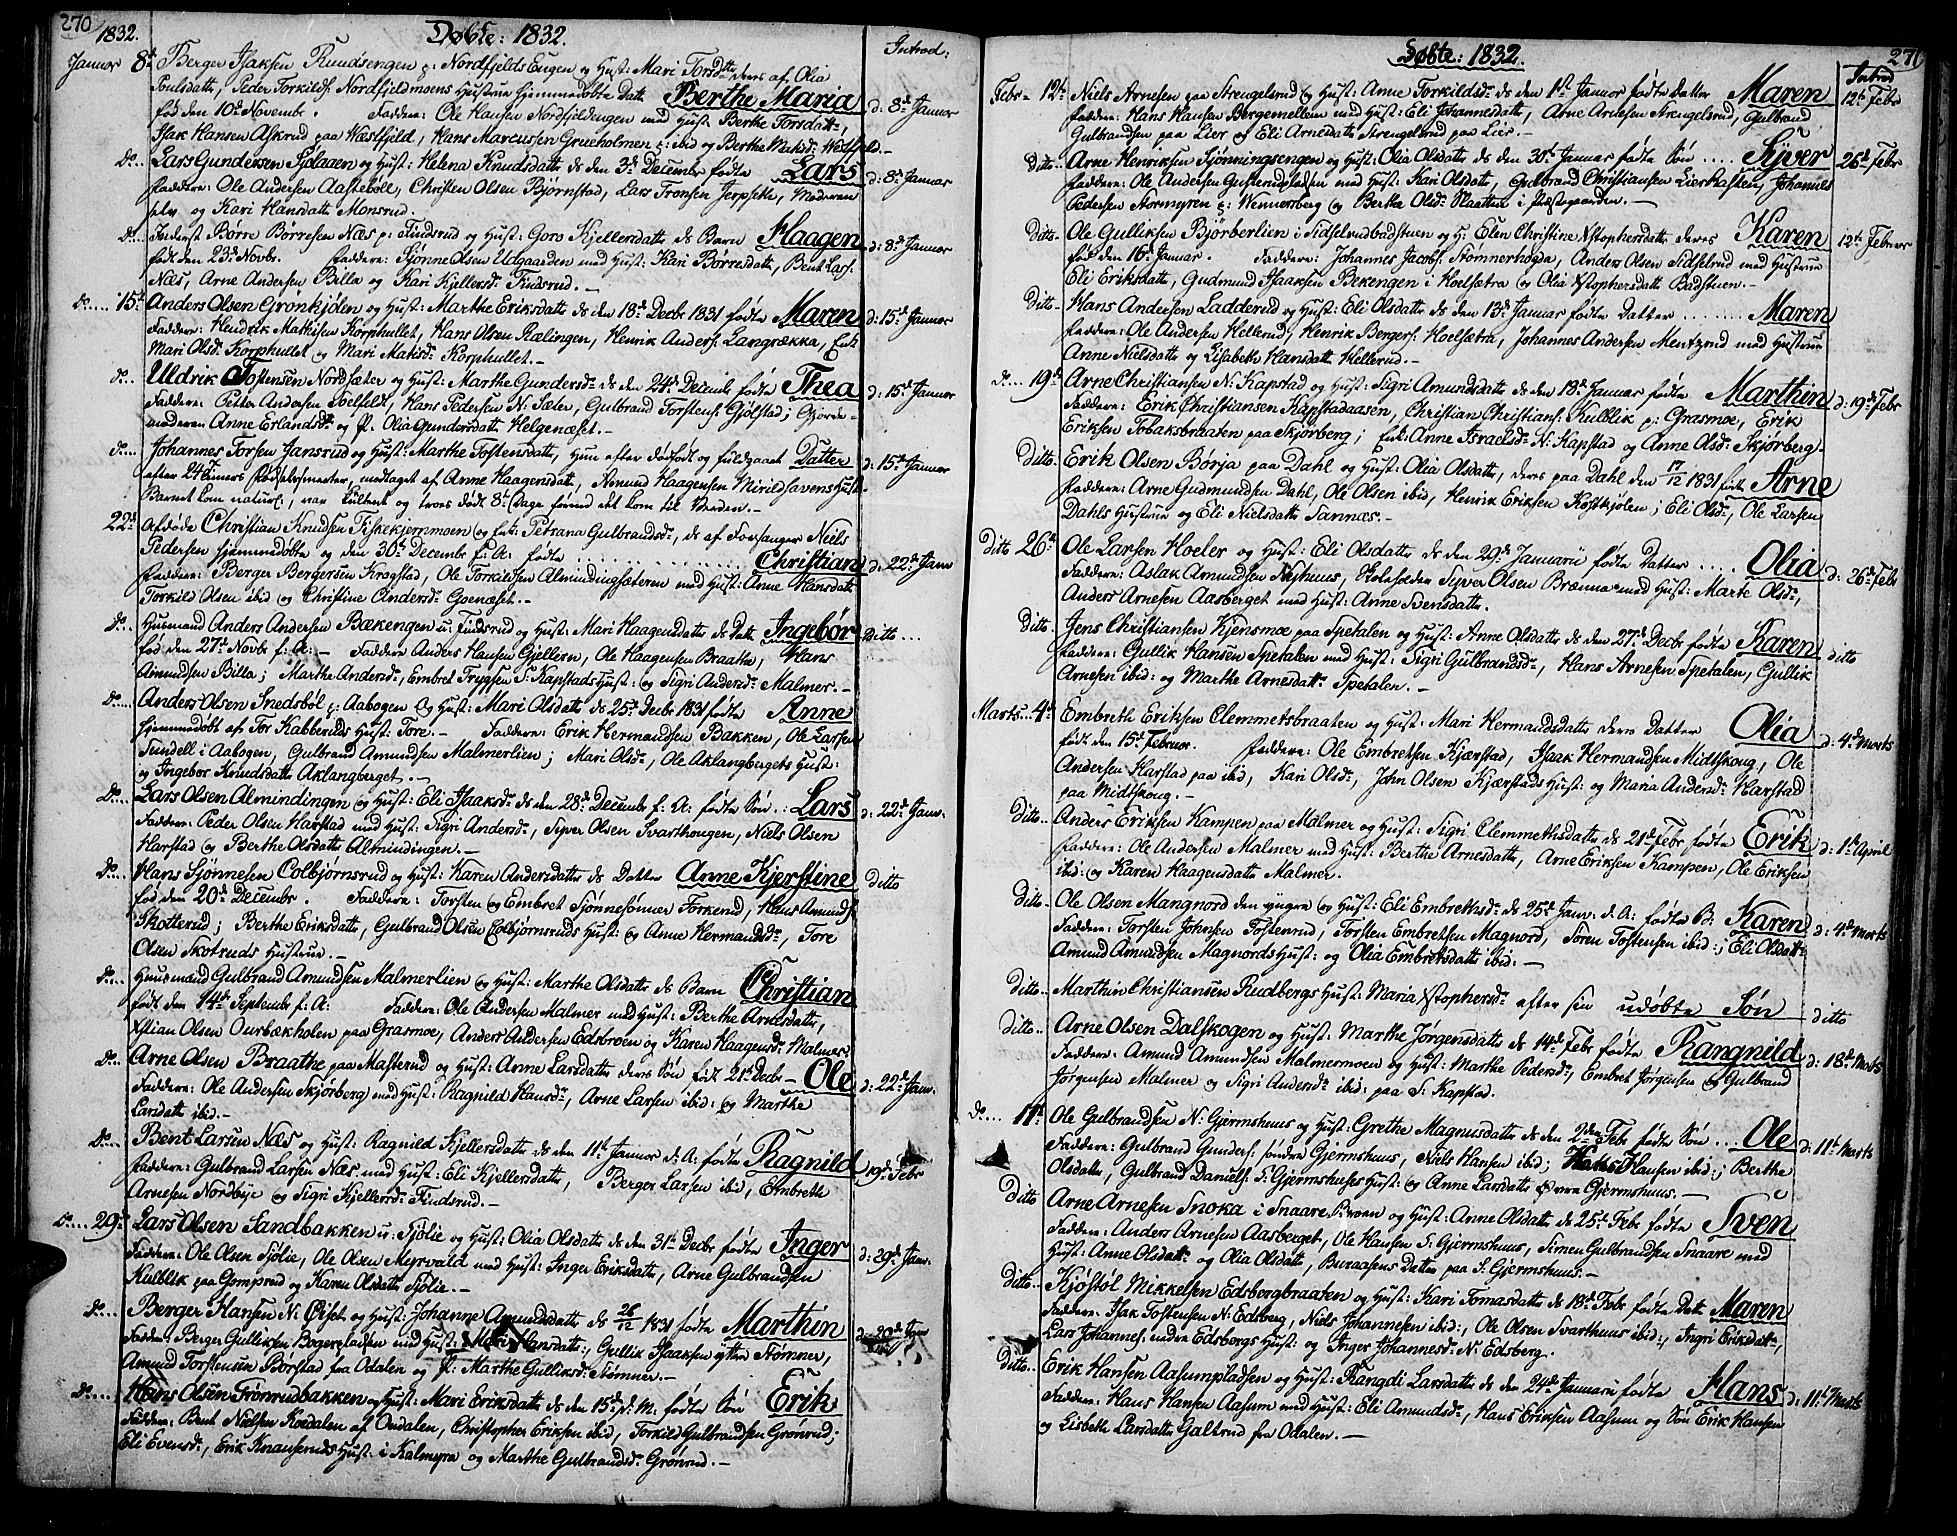 270
1832.
Døbte: 1832.
Introd:
Januar 8de Berger Isaksen Rundsengen p: Nordfjelds Eugen og Hust: Mari Torsdtte deres af Olia
Poulsdatte, Peder Torkilds: Nordfjeldmoens Hustrue hjemmedøbte Date Berthe Maria d: 8de Januar
fød den 10de Novembr. Faddere: Ole Hansen Nordfjeldeugen med Hust: Berthe Torsdatte,
Isak Hansen Askrud paa Westfjeld, Hans Marcussen Grueholmen p: ibid og Berthe Matisd: Westfjeld.-
Do Lars Gundersen Sjølaaen og Hust: Helena Knudsdatte ds den 3de Decembr fødte Lars d: 8de Januar
Faddere: Ole Andersen Aastebøll, Christen Olsen Bjørnstad, Lars Tronsen Jerpseth, Moderen
selv og Kari Hansdatte Monsrud.
Do Inderst Børre Børresen Næs p: Findsrud og Hust: Goro Kjellersdatte ds Barn Haagen d: 8de Januar
født den 23de Novbr. Faddere: Sjønne Olsen Udgaarden med Hust: Kari Børresdatte, Bent Lars:
Næs, Arne Andersen Billa og Kari Kjellersd: Findsrud.-
Do 15de Anders Olsen Grønkjølen og Hust: Marthe Eriksdatte ds den 18de Decbr 1831 fødte Maren d: 15de Januar
Faddere: Hendrik Mathisen Korphullet, Hans Olsen Rælingen, Henrik Anders: Langrækka, Enk
Mari Olsd: Korphullet og Mari Matisd: Korphullet.-
Do Uldrik Tostensen Nordsæter og Hust: Marthe Gundersd: ds den 24de Decembr fødte Thea d: 15de Januar
Faddere: Petter Andersen Loelfeldt, Hans Pedersen N: Sæter, Gulbrand Torstens: Gjølstad; Gjorde-
moderen Anne Erlandsd: og P. Olia Gundersdatte Helgenæset.-
Do Johannes Torsen Jansrud og Hust: Marthe Tostensdatte, Hun efter dødfødt og fuldgaaet Datter d: 15de Januar
efter 24 Timers Fødselsmerter, modtaget af Anne Haagensdatte, Amund Haagensen Mirildhavens Hust:
Barnet kom naturl:, var og troes dødt 8te Dage førend det kom til Verden.-
22de Afdøde Christian Knudsen Fiskekjernmoen og Enk: Petrana Gulbrandsd:, ds af Forsanger Niels
Pedersen hjemmedøbte og den 30de Decembr f: A: fødte Christian d: 22de Janr
Faddere: Berger Bergersen Krogstad, Ole Torkildsen Almindingsæteren med Hust: Anne Hansdatte
Torkild Olsen ibid og Christine Andersd: Goenæset.-
Do Husmand Anders Andersen Bækengen u: Findsrud og Hust: Mari Haagensdatte ds Date Ingebor Ditto
fød den 27de Novbr f: A: - Faddere Anders Hansen Gjellern, Ole Haagensen Braathe, Hans
Amundsen Billa; Marthe Andersd:, Embret Trygsen S: Kapstads Hust: og Sigri Andersd: Malmer.-
Do Anders Olsen Snedsbøl p: Aabogen og Hust: Mari Olsdatte ds 25de Decbr 1831 fødte Anne
hjemmedøbt af Tor Kabberuds Hust: Tore.- Faddere: Erik Hermandsen Bakken, Ole Larsen
Tundell i Aabogen, Gulbrand Amundsen Malmerlien; Mari Olsd:, Ole Aklangbergets Hust:
og Ingebor Knudsdatte Aklangberget.-
Do Lars Olsen Almindingen og Hust: Eli Isaksd: ds den 28de Decembr f: A: fødte Søn Lars d: 22de Janr.
Faddere: Peder Olsen Harstad med Hust: Sigri Andersd:, Syver Olsen Svarthougen, Niels Olsen
Harstad og Berthe Olsdatte Almindingen.-
Do Hans Sjønnesen Colbjørnsrud og Hust: Karen Andersdatte ds Datter Anne Kjerstine ditto
fød den 20de Decembr. Faddere: Torsten og Embret Sjønnesønner Torkerud, Hans Amunds:
Skotterud; Berthe Eriksdatte, Gulbrand Olsen Colbjørnsruds Hust: og Anne Hermandsd:, Tore
Olsen Skotruds Hustrue.-
Do Huusmand Gulbrand Amundsen Malmerlien og Hust: Marthe Olsdatte ds Barn Christian
født den 14de Septembr f: A: Faddere: Ole Andersen Malmer med Hust: Berthe Arnesdatte,
Xstian Olsen Ourbækholen paa Grasmoe, Anders Andersen Edsbroen og Karen Haagensd: Malmer.
Do Arne Olsen Braathe paa Masterud og Hust: Anne Larsdatte deres Søn født 21de Decbr Ole d: 22de Jan.
Faddere: Ole Andersen Skjørberg med Hust: Ragnild Hansd:, Arne Larsen ibid: og Marthe
Larsdatte ibid.-
Do Bent Larsen Næs og Hust: Ragnild Kjellersdatte ds den 11te Januar d: A: fødte Ragnild 19de Febr
Faddere: Gulbrand Larsen Næs med Hust: Eli Kjellersdatte, Berger Larsen ibid, Embreth
Arnesen Nordbye og Sigri Kjellersd: Findsrud.-
Do 29de Lars Olsen Sandbakken u: Sjølie og Hust: Olia Olsdatte ds den 31te Decbr fødte Inger d: 29de Jan.
Faddere: Ole Olsen Sjølie, Ole Olsen Myrvald med Hust: Inger Eriksdatte, Arne Gulbrandsen
Kulblik paa Gomprud og Karen Olsdatte Sjølie.-
Do Berger Hansen N: Øiset og Hust: Johanne Amundsdatte ds 26/12 1831 fødte Marthin d: 29de Janr
Faddere: Berger Gulliksen Bogerpladsen med Hust: Mari Hansdatte, Gullik Isaaksen yttre Strømner,
Amund Torstensen Borstad fra Odalen og P: Marthe Gulliksd: Strømner.-
Do Hans Olsen Trønrudbakken og Hust: Mari Eriksdatte ds den 15de d: M: fødte Søn Erik
Faddere: Bent Nielsen Kordalen af Oudalen, Christopher Eriksen ibid, Torkild Gulbrandsen Grønrud;
Eli Evensd:, Erik Knausernds Hust: i Kalmyra og Marthe Gulbrandsd: Grønrud.-
Døbte: 1832.
271
Introd
Febr 12te Niels Arnesen paa Strengelsrud og Hust: Anne Torkildsd: ds den 1ste Januar fødte Datter Maren 12te Febr
Faddere: Hans Hansen Bergemellem med Hust: Eli Johannesdatte, Arne Arnesen Strengelsrud, Gulbrand
Gulbrandsen paa Lier og Eli Arnesdatte Strengelsrud paa Lier.-
Ditto Arne Henriksen Sjønningsengen og Hust: Olia Olsdatte ds den 30te Januar fødte Søn Syver 26de Febr
Faddere: Ole Andersen Gusterudpladsen med Hust: Kari Olsdatte, Gulbrand Christiansen Lierkasten, Johannes
Pedersen Stormyren p: Wennersberg og Berthe Olsd: Slaatten i Præstegaarden.-
Ditto Ole Gulliksen Bjørberlien i Sidselrudbadstuen og H: Elen Christine Xstophersdatte deres Karen 12te Februar
fød den 16de Januar. Faddere: Johannes Jacobs: Strømnerhøgda, Anders Olsen Sidselrud med Hustrue
Eli Eriksdatte, Gudmund Isaaksen Bekengen i Hoelsætra og Olia Xstophersdatte Badstuen.-
Ditto Hans Andersen Ladderud og Hust: Eli Olsdatte ds den 13de Januar fødte Datter Maren
Faddere: Ole Andersen Hellerud, Henrik Bergers: Hoelsætra, Johannes Andersen Mentzrud med Hustrue
Anne Nielsdatte og Lisabeth Hansdatt Hellerud.-
Do 19de Arne Christiansen N: Kapstad og Hust: Sigri Amundsdatte ds den 18de Januar fødte Marthin d: 19de Febr
Faddere: Erik Christiansen Kapstadaasen, Christian Christians: Kulblik p: Grasmoe, Erik
Eriksen Tobaksbraaten paa Skjørberg; Enk: Anne Israelsd: N: Kapstad og Anne Olsd: Skjørberg.
Ditto Erik Olsen Børja paa Dahl og Hust: Olia Olsdatte, deres paa Dahl den 17/12 1831 født Arne
Faddere: Arne Gudmundsen Dahl, Ole Olsen ibid, Henrik Eriksen Kostkjølen; Eli Olsd:, Ole Larsen
Dahls Hustrue og Eli Nielsdatte Sannæs.-
Ditto 26de Ole Larsen Hoeler og Hust: Eli Olsdatte ds den 29de Januarii fødte Datter Olia d: 26de Febr
Faddere: Aslak Amundsen Nyhuus, Skoleholder Syver Olsen Brænna med Hust: Marte Olsd:,
Anders Arnesen Aasberget med Hust: Anne Svensdatte.
Ditto Jens Christiansen Kjensmoe paa Spetalen og Hust: Anne Olsdatte ds den 27de Decbr fødte Karen ditto
Faddere: Gullik Hansen Spetalen med Hust: Sigri Gulbrandsd:, Hans Arnesen Spetalen, Gullik
Arnesen ibid: og Marthe Arnesdatte Spetalen.-
Marts 4de Embreth Eriksen Clemmetsbraaten og Hust: Mari Hermandsdatte deres Datter Olia d: 4de Marts
født den 15de Februar. Faddere: Ole Embretsen Kjærstad, Isaak Hermandsen Midtskoug, Ole
Andersen Harstad paa ibid, Kari Olsd:, John Olsen Kjærstads Hust: og Maria Andersd: Harstad
paa Midtskoug.-
Ditto Anders Eriksen Kampen paa Malmer og Hust: Sigri Clemmethsdatte ds 21de Febr fødte Erik d: 1ste April
Faddere: Ole Andersen Malmer med Hust: Berthe Arnesdatte, Arne Eriksen Kampen, Ole Eriksen
ibid: og Karen Haagensdatte Malmer.
Ditto Ole Olsen Mangnord den yngre og Hust: Eli Embrethsd: ds 25de Janr. d. A: fødte B: Karen d: 4de Marts
Faddere: Torsten Johnsen Tostenrud, Torsten Embretsen Magnord, Søren Tostensen ibid:; Eli Olsdatte
Amund Amundsen Magnords Hust: og Olia Embretsdatte ibid.-
Ditto Marthin Christiansen Rudbergs Hust: Maria Xstophersd: efter sin udøbte Søn ditto
Ditto Arne Olsen Dalskogen og Hust: Marthe Jørgensdatte ds 14de Febr fødte Rangnild d: 18de Marts
Faddere: Amund Amundsen Malmermoen og Hust: Marthe Pedersd:, Embret Jørgensen og Gulbrand
Jørgensen Malmer og Sigri Andersd: ibid: paa S: Kapstad.
Do 11te Ole Gulbrandsen N: Gjermshuus og Hust: Grethe Magnusdatte ds den 2den Febr fødte Søn Ole d: 11te Marts
Faddere: Gulbrand Gunders: søndre Gjermshuus, Niels Hansen ibid; Hans Hansen ibid:; Berthe
Olsdatte, Gulbrand Daniels: S: Gjermshuses Hust: og Anne Larsdatte Øvre Gjermshuus.-
Ditto Arne Arnesen Snoka i Snaare Broen og Hust: Anne Olsdatte ds 25de Febr fødte Sven
Faddere: Anders Arnesen Aasberget, Ole Hansen S: Gjermshuus, Simen Gulbrandsen Snaare med
Hust: Anne Olsdatte og Olia Olsdatte, Buraasens Datter paa S: Gjermshuus.-
Ditto Kjøstøl Mikkelsen Edsbergbraaten og Hust: Kari Tomasdatte ds 18de Febr fødte Date Maren
Faddere: Isak Tostensen N: Edsberg, Niels Johannesen ibid:, Ole Olsen Svarthuus ibid:, Ingri Eriksdatte,
Lars Johannes: nedre Edsbergs Hust: og Inger Johannesd: N: Edsberg.
Ditto Erik Hansen Aasumpladsen og Hust: Rangdi Larsdatte ds den 24de Januarii fødte Hans d: 11te Marts
Faddere: Hans Hansen Aasum med Hust: Eli Amundsd:, Hans Eriksen Aasum og Søn Erik Hansen
og Lisbeth Larsdatte Galtrud fra Odalen.-